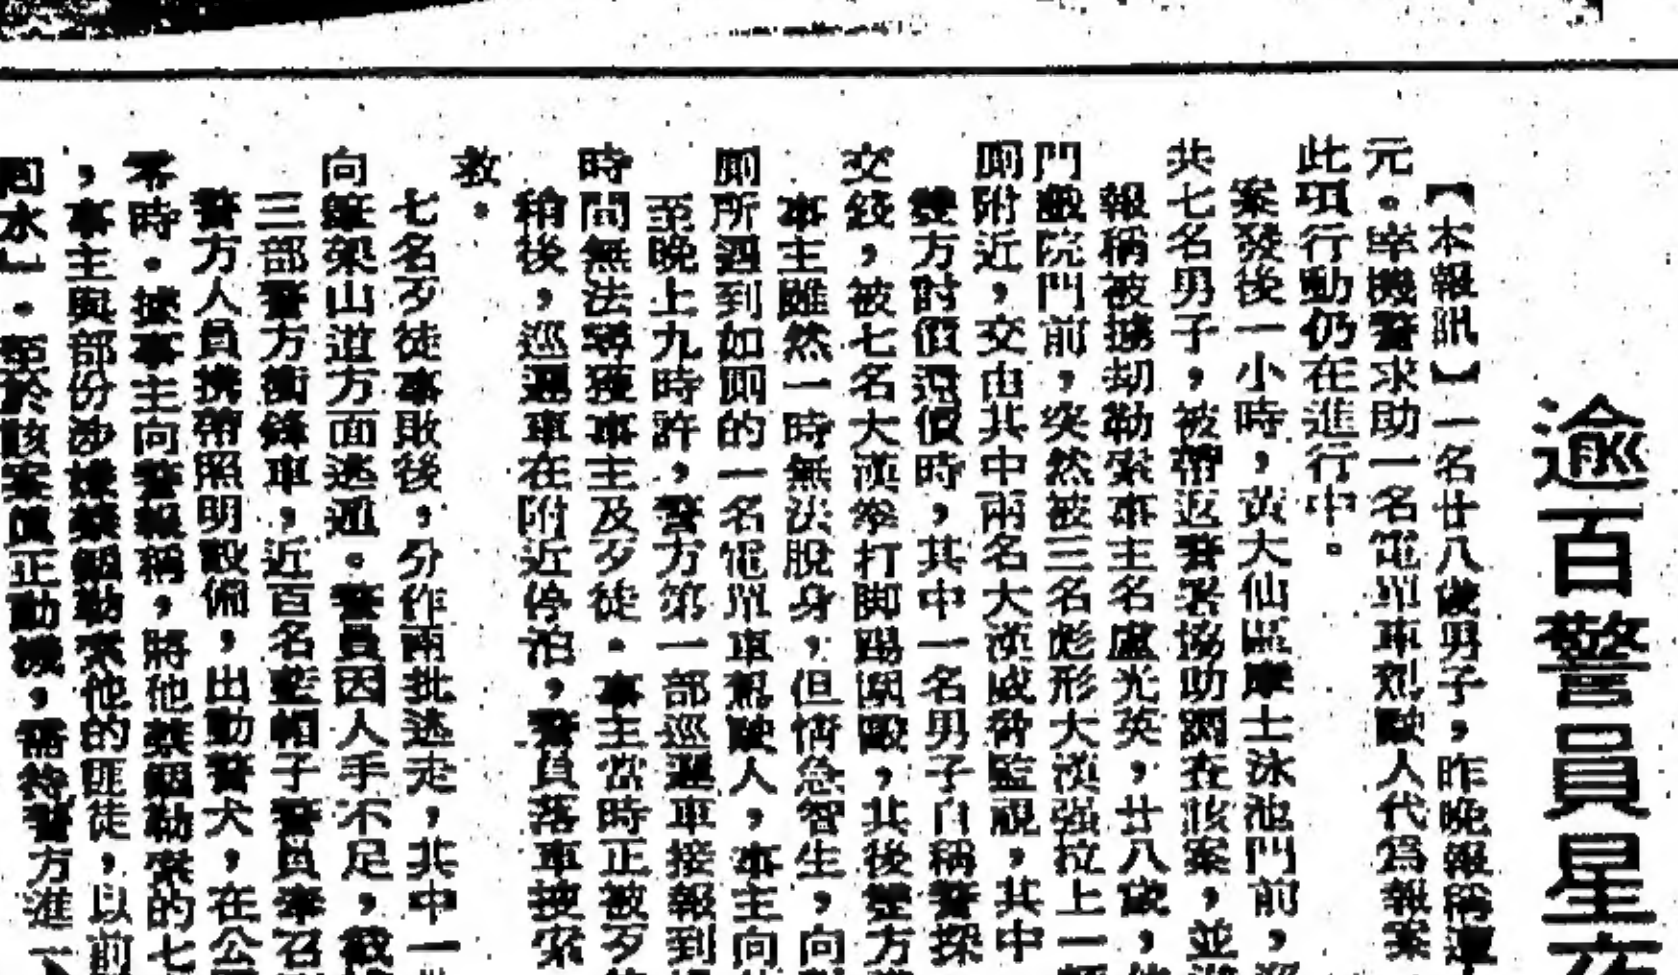 逾百警員星夜
【本報訊】一名廿八歲男子，昨晚報稱遭
元。幸機警求助一名電單車剋駛人代為報案
此項行動仍在進行中。
案發後一小時，黃大仙區摩士泳池門前，
共七名男子，被帶返警署協助調查該案，並
報稱被擄刧勒索事主名盧光英，廿八歲，
門戲院門前，突然被三名彪形大漢强拉上一
厠附近，交由其中兩名大漢威脅監視，其中
雙方討價還價時，其中一名男子自稱警探
交錢，被七名大漢拳打脚踢毆，其後雙方
事主雖然一時無法脫身，但情急智生，向
厠所遇到如厠的一名電單車駕駛人，事主向
至晚上九時許，警方第一部巡邏車接報到
時間無法尋獲事主及歹徒。事主當時正被歹
稍後，巡邏車在附近停泊，警員落車搜索
救。
七名歹徒事敗後，分作兩批逃走，其中一
向筆架山道方面逃遁。警員因人手不足，
三部警方衝鋒車，近百名藍帽子警員奉召
警方人員携帶照明設備，出動警犬，在公
零時。據事主向警報稱，將他綁勒索的七
，事主與部份涉嫌勒索他的匪徒，以前
回水」。至於該案眞正動機，需待警方進一